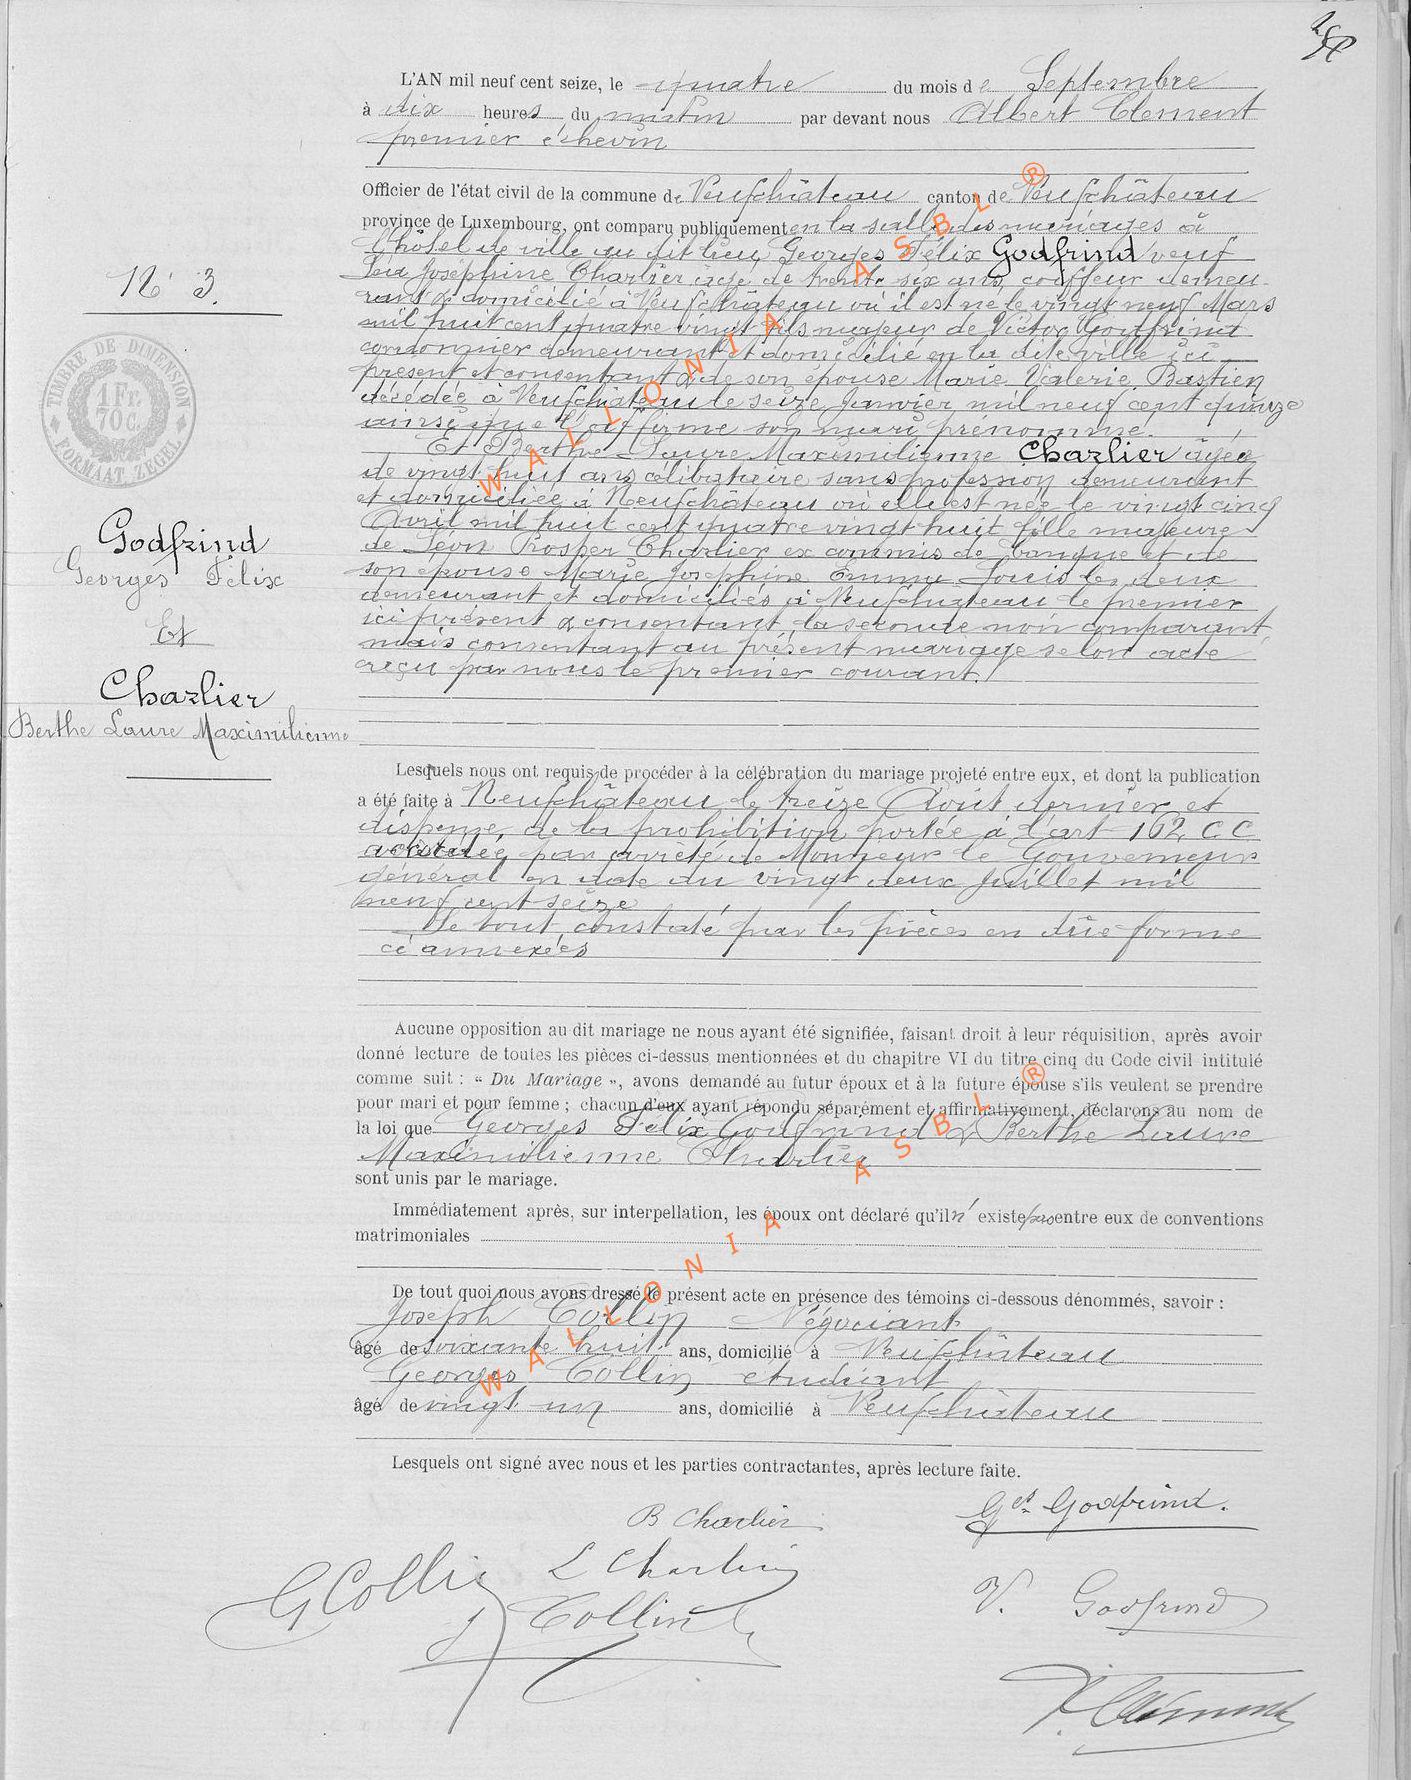 L'AN mil neuf cent seize, le quatre du mois de Septembre
à dix heures du matin par devant nous Albert Clement
premier échevin
Officier de l'état civil de la commune de Neufchâteau canton de Neufchâteau
province de Luxembourg, ont comparu publiquement en la salle des mariages à
l'hôtel de ville au dit lieu Georges Félix Godfrind veuf
Joséphine Charlier âgé de trente six ans, coiffeur demeu-
rant & domicilié à Neufchâteau où il est né le vingt neuf Mars
mil huit cent quatre vingt fils majeur de Victor Godfrind
cordonnier demeurant et domicilié en la dite ville ici
présent et consentant & de son épouse Marie Valerie Bastien
décédée à Neufchâteau le seize Janvier mil neuf cent quinze
ainsi que l'affirme son mari prénommé.
Et Berthe Laure Maximilienne Charlier âgée
de vingt huit ans célibataire sans profession demeurant
et domiciliée à Neufchâteau où elle est née le vingt cinq
Avril mil huit cent quatre vingt huit fille majeure
de Léon Prosper Charlier ex commis de banque et de
son épouse Marie Josephine Emma Louis les deux
demeurant et domiciliés à Neufchateau le premier
ici présent & consentant, la seconde non comparant,
mais consentant au présent mariage selon acte
reçu par nous le premier courant.
N° 3.
TIMBRE DE DIMENSION
1 Fr.
70 c.
FORMAAT ZEGEL
Godfrind
Georges Félix
Et
Charlier
Berthe Laure Maximilienne
Lesquels nous ont requis de procéder à la célébration du mariage projeté entre eux, et dont la publication
a été faite à Neufchâteau le treize Août dernier et
dispense de la prohibition portée à l'art 162 C C
accordée par arrêté de Monsieur le Gouverneur
général en date du vingt deux Juillet mil
neuf cent seize
Le tout constaté par les pièces en dûe forme
ci annexées
Aucune opposition au dit mariage ne nous ayant été signifiée, faisant droit à leur réquisition, après avoir
donné lecture de toutes les pièces ci-dessus mentionnées et du chapitre VI du titre cinq du Code civil intitulé
comme suit : « Du Mariage », avons demandé au futur époux et à la future épouse s'ils veulent se prendre
pour mari et pour femme ; chacun d'eux ayant répondu séparément et affirmativement, déclarons au nom de
la loi que Georges Félix Godfrind & Berthe Laure
Maximilienne Charlier
sont unis par le mariage.
Immédiatement après, sur interpellation, les époux ont déclaré qu'il n'existe pas entre eux de conventions
matrimoniales
De tout quoi nous avons dressé le présent acte en présence des témoins ci-dessous dénommés, savoir :
Joseph Collin Négociant
âgé de soixante huit ans, domicilié à Neufchâteau
Georges Collin etudiant
âgé de vingt un ans, domicilié à Neufchâteau
Lesquels ont signé avec nous et les parties contractantes, après lecture faite.
B Charlier
Ges Godfrind.
L Charlier
G Collin
V. Godfrind
J Collin
A. Clement
WALLONIA ASBL ®
WALLONIA ASBL ®